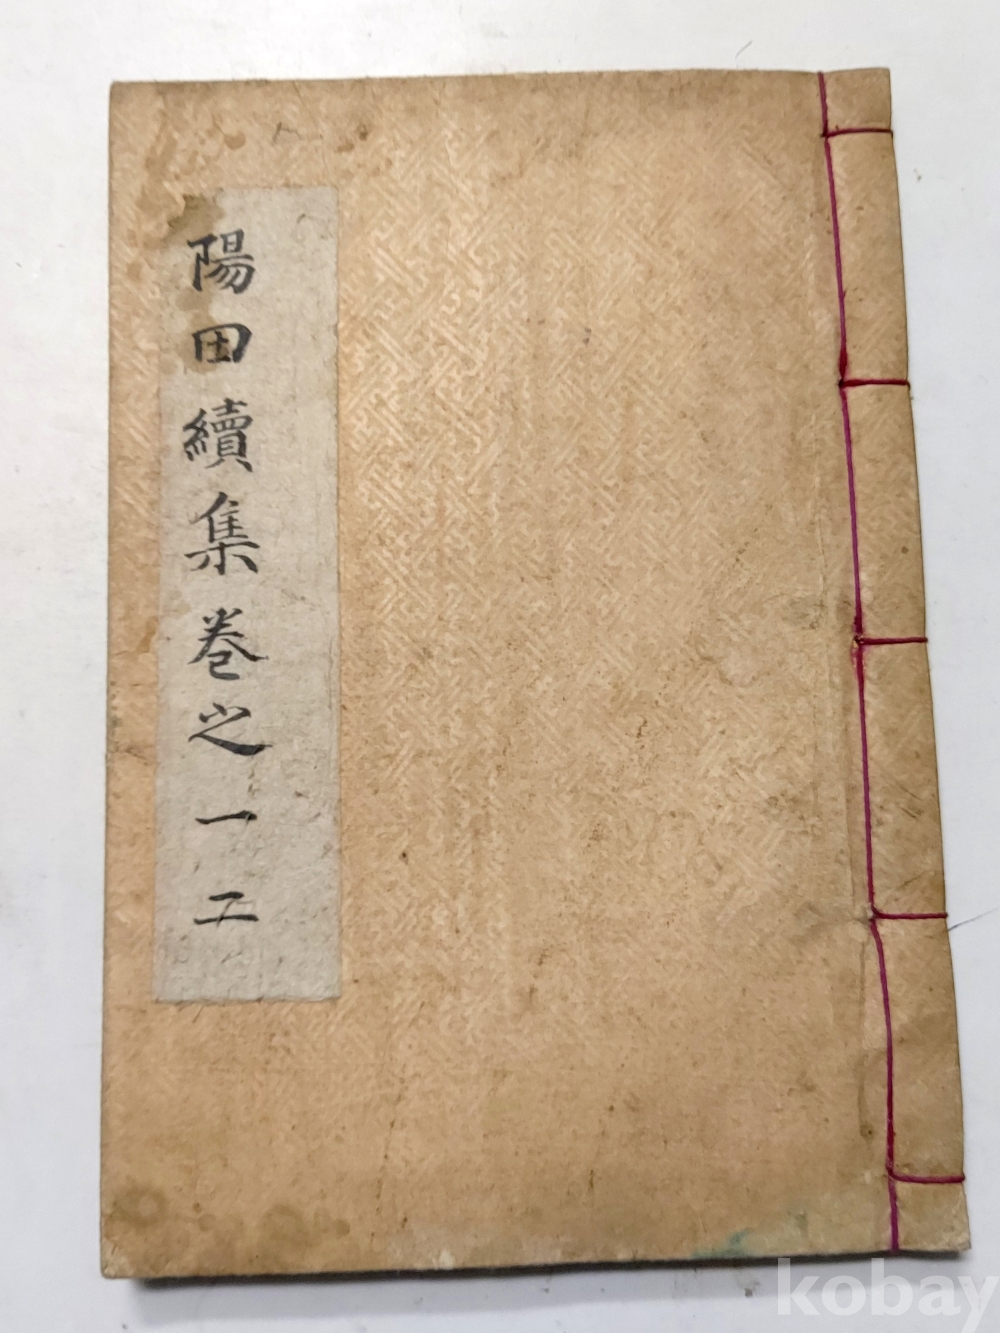 陽田續集卷之一二
kobay